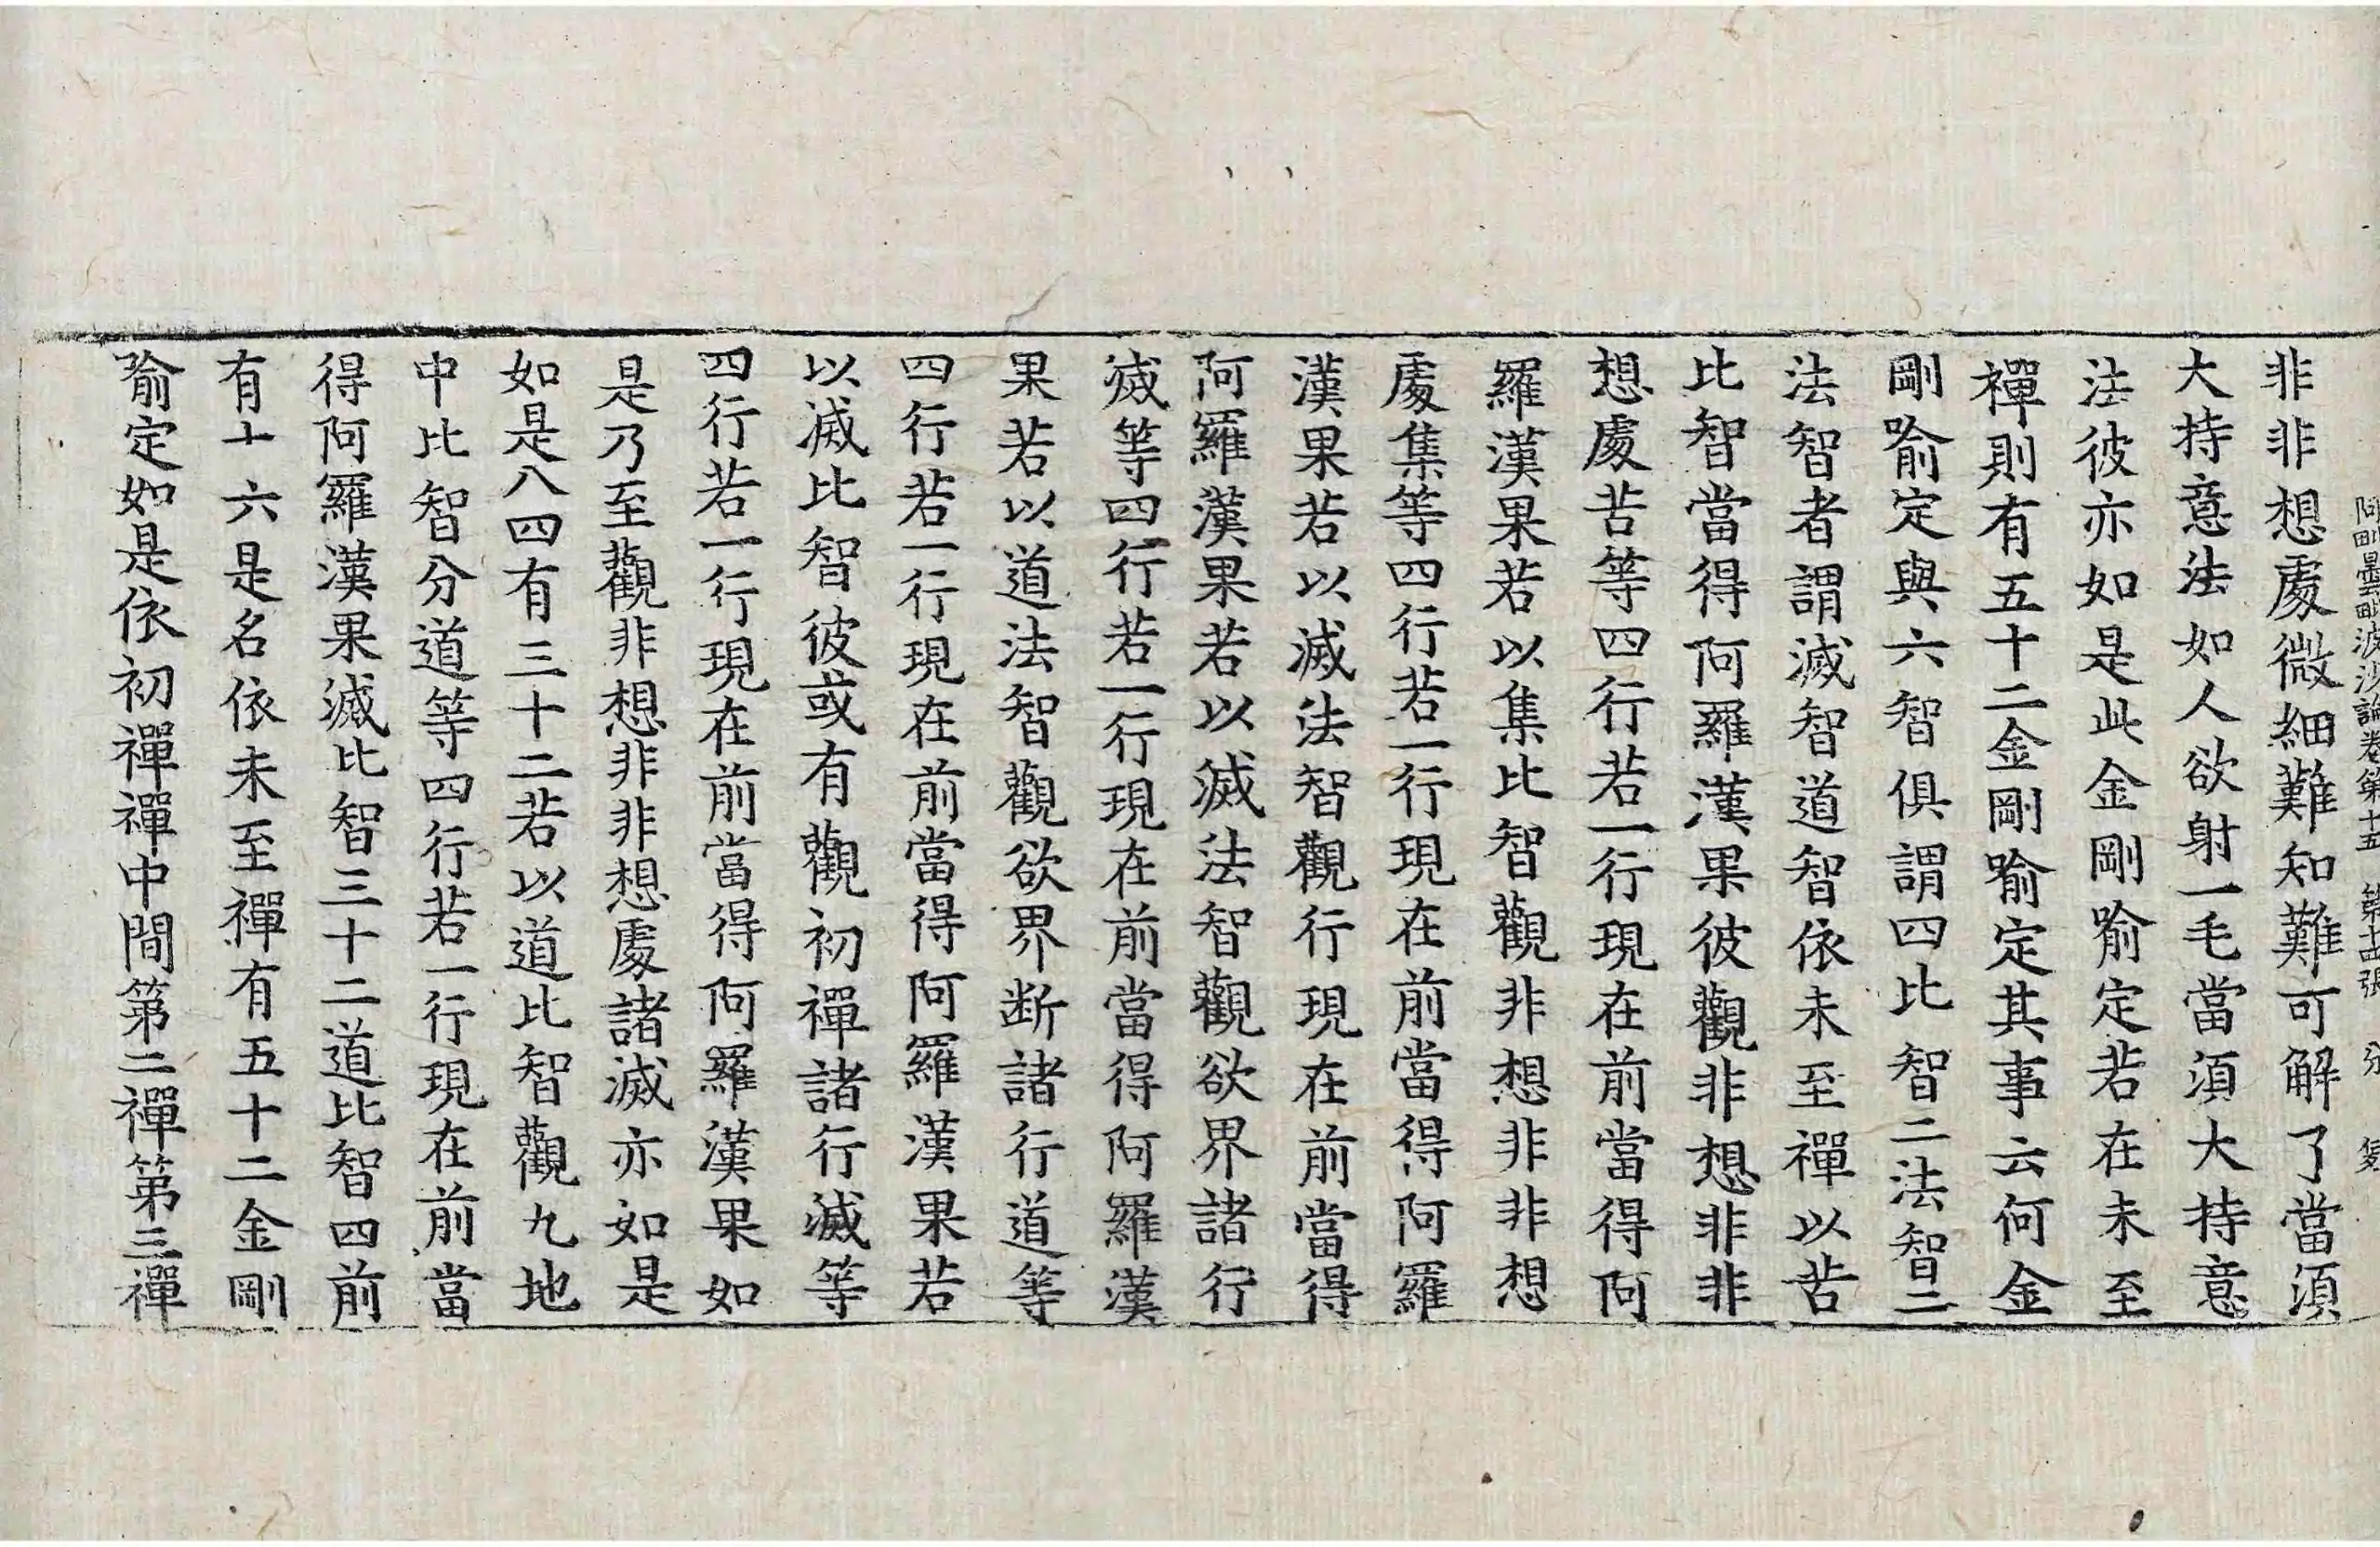 阿毗曇毗波沙論卷第十五 第十四張
非非想處微細難知難可解了當須
大持意法如人欲射一毛當須大持意
法彼亦如是此金剛喻定若在未至
禪則有五十二金剛喻定其事云何金
剛喻定與六智俱謂四比智二法智二
法智者謂滅智道智依未至禪以苦
比智當得阿羅漢果彼觀非想非非
想處苦等四行若一行現在前當得阿
羅漢果若以集比智觀非想非非想
處集等四行若一行現在前當得阿羅
漢果若以滅法智觀行現在前當得
阿羅漢果若以滅法智觀欲界諸行
滅等四行若一行現在前當得阿羅漢
果若以道法智觀欲界断諸行道等
四行若一行現在前當得阿羅漢果若
以滅比智彼或有觀初禪諸行滅等
四行若一行現在前當得阿羅漢果如
是乃至觀非想非非想處諸滅亦如是
如是八四有三十二若以道比智觀九地
中比智分道等四行若一行現在前當
得阿羅漢果滅比智三十二道比智四前
有十六是名依未至禪有五十二金剛
喻定如是依初禪禪中間第二禪第三禪